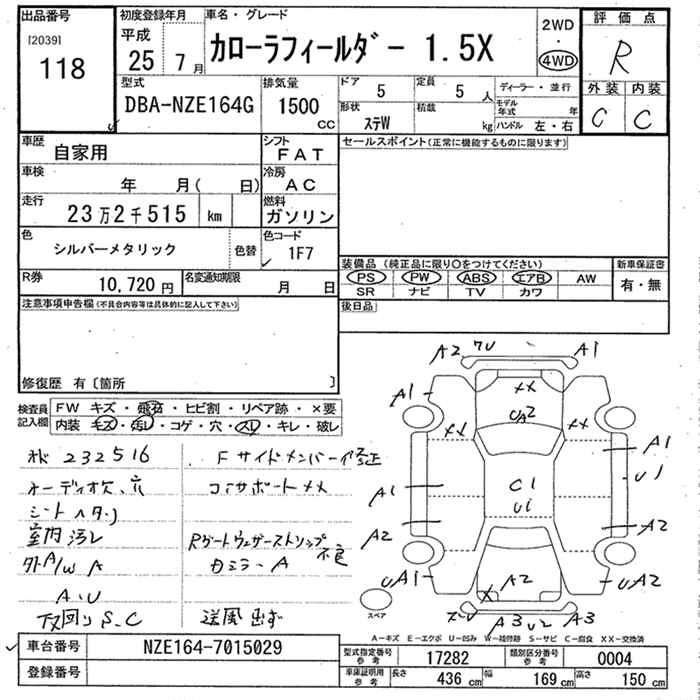 出品番号
[2039]
118
初度登録年月
平成
25年7月
車名・グレード
カローラフィールダー 1.5X
2WD
・
4WD
評価点
R
外装 内装
C C
型式
DBA-NZE164G
排気量
1500
cc
ドア
5
定員
5人
形状
ステW
積載
kg
ディーラー・並行
モデル年式 年
ハンドル 左・右
車歴
自家用
シフト
FAT
セールスポイント(正常に機能するものに限ります)
車検
年 月( 日)
冷房
AC
走行
23万2千515 km
燃料
ガソリン
色
シルバーメタリック
色替
色コード
1F7
R券
10,720円
名変通知期限
月 日
装備品(純正品に限り○をつけてください)
PS PW ABS エアB AW
SR ナビ TV カワ
新車保証書
有・無
後日品
注意事項申告欄(不具合内容等は具体的に記入して下さい)
修復歴 有〔箇所 〕
検査員
記入欄
FW キズ・飛石・ヒビ割・リペア跡・×要
内装 キズ・汚レ・コゲ・穴・スレ・キレ・破レ
232516
Fサイドメンバー修正
オーディオ欠、穴
コアサポートXX
シートヘタリ
室内汚レ
Rゲートウェザーストリップ不良
外A/W A
カミラーA
A・U
下回りS、C
送風出ず
A2 A1
A1
XX
UA2
XX XX
A1
A1
C1
U1
U1
A2
A2
UA1
A2
UA2
X
A3 U2 A3
スペア
A-キズ E-エクボ U-凹み W-補修跡 S-サビ C-腐食 XX-交換済
車台番号
NZE164-7015029
登録番号
型式指定番号
参考
17282
類別区分番号
参考
0004
車庫証明用
参考
長さ 436 cm 幅 169 cm 高さ 150 cm